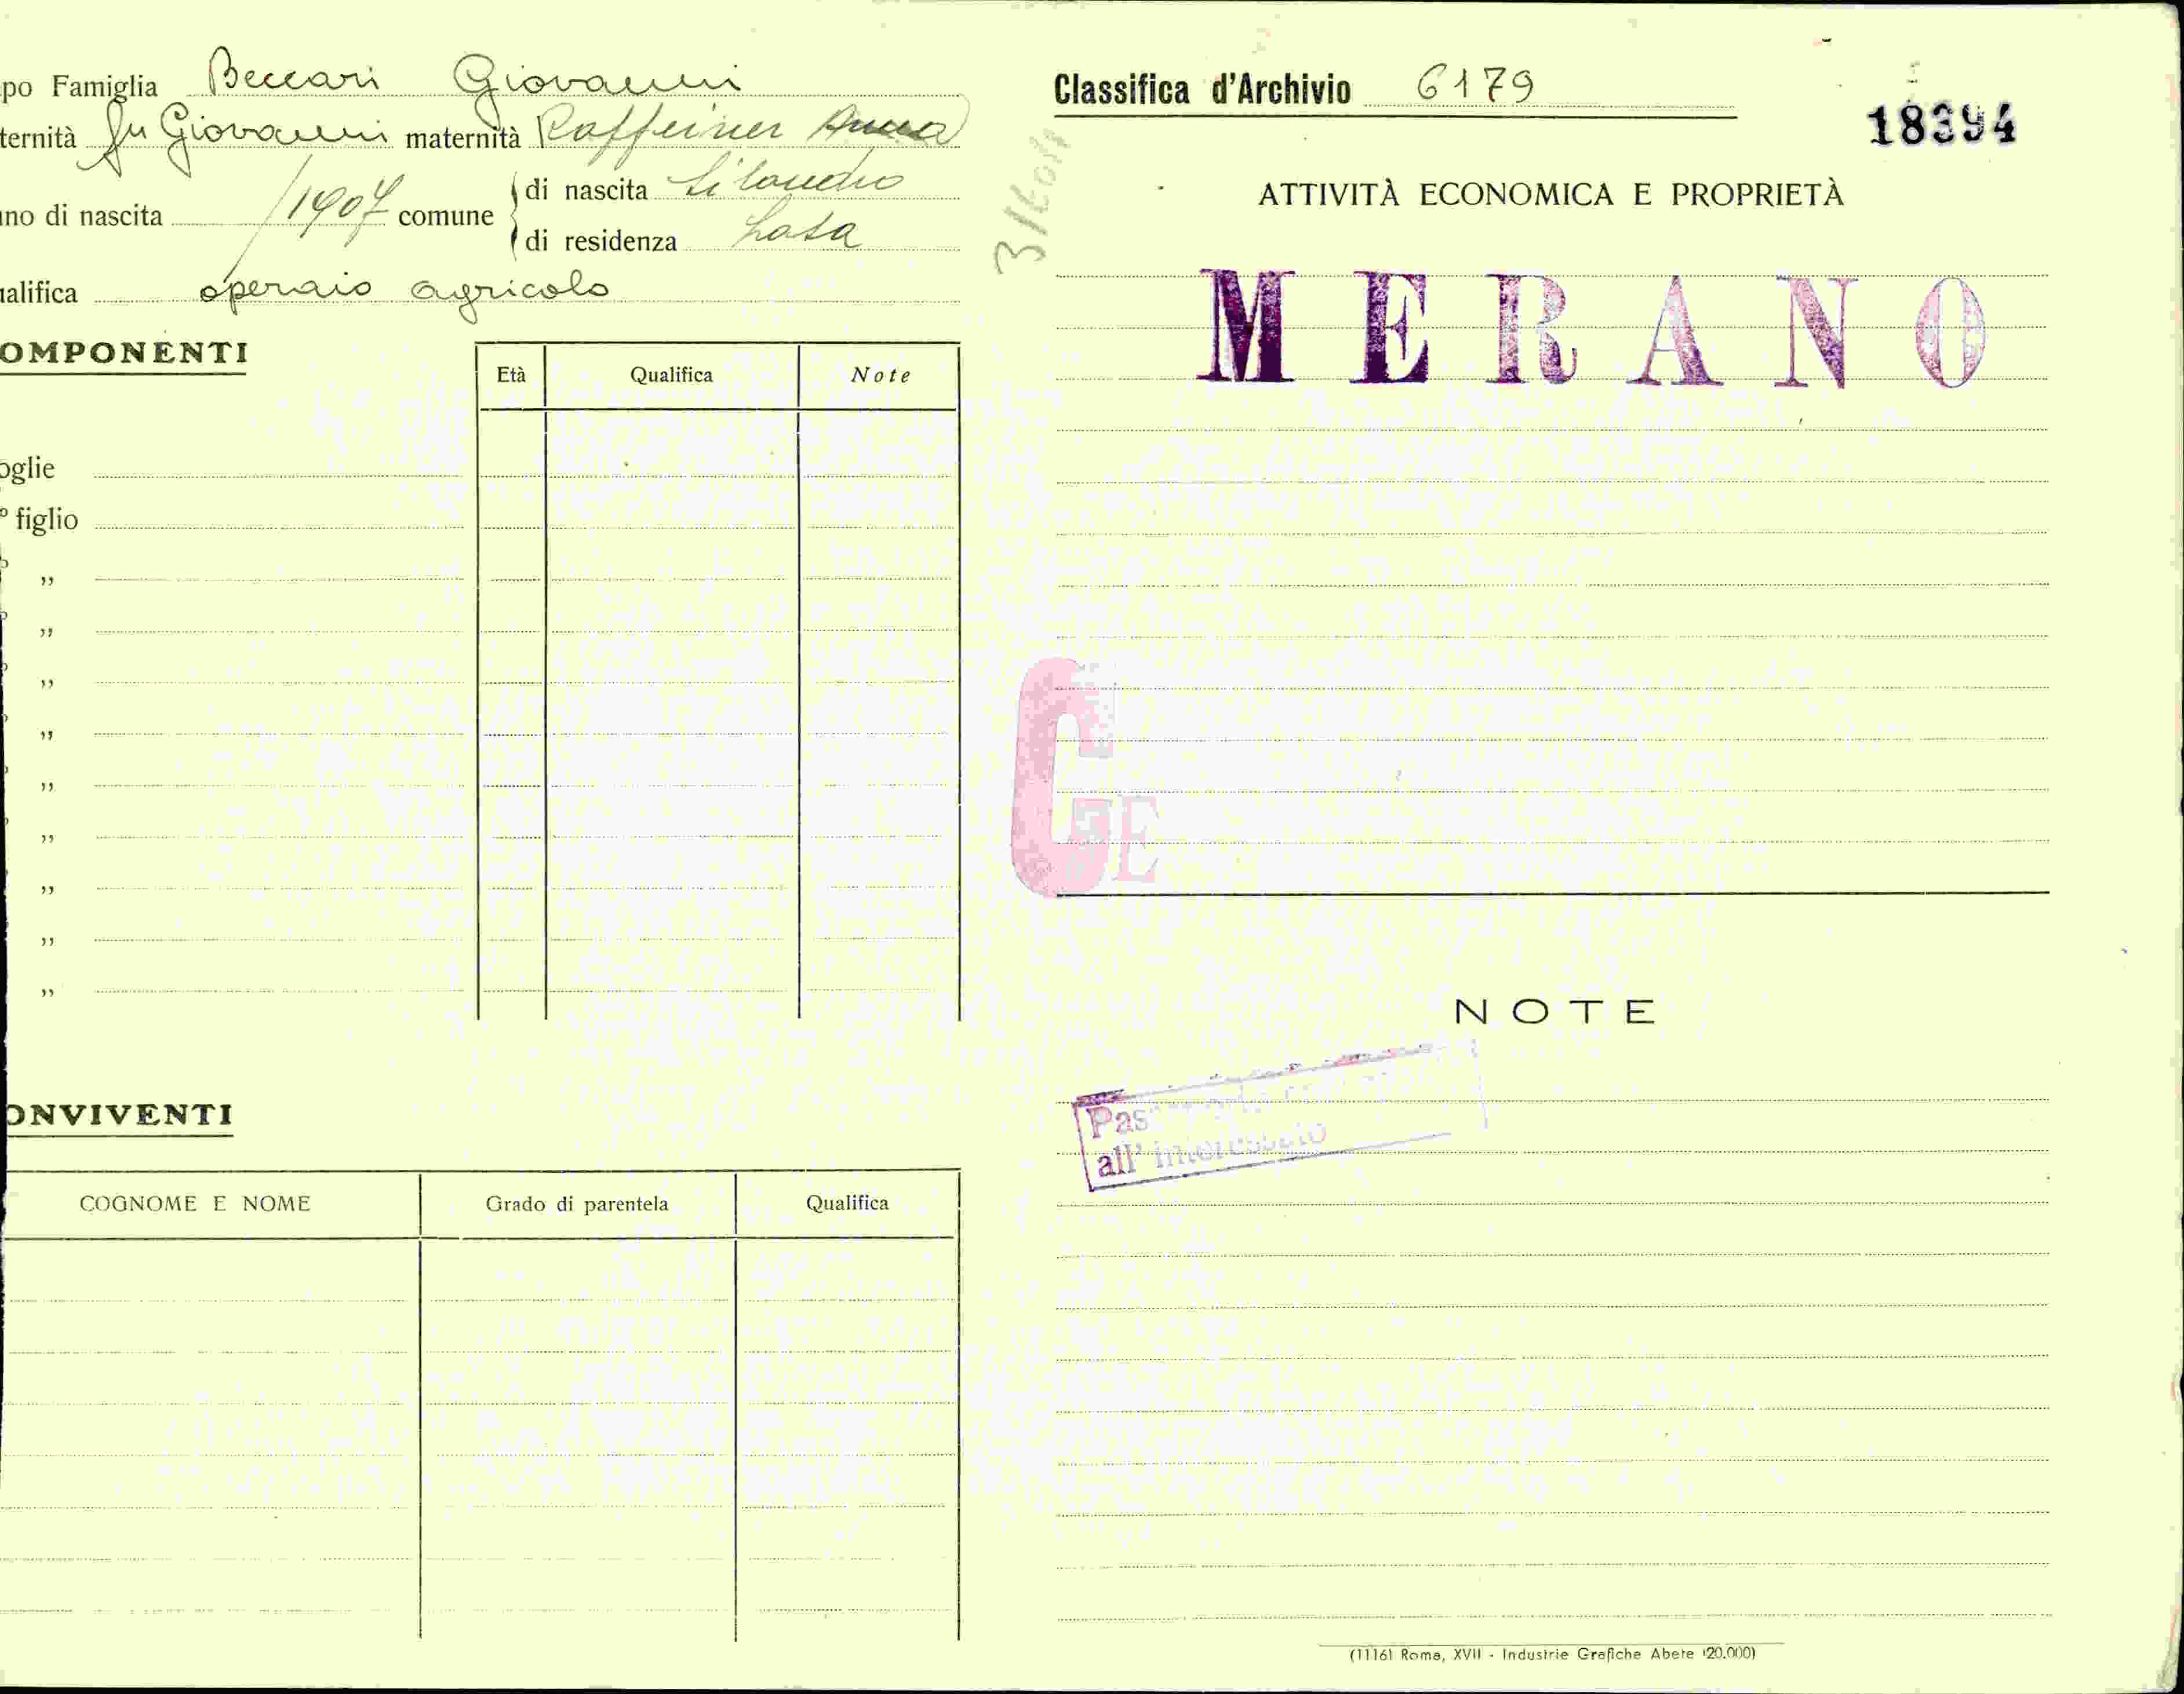 po Famiglia Beccari Giovanni
ternità fu Giovanni maternità Raffeiner Anna
no di nascita 1907 comune
di nascita Silandro
di residenza Lasa
ualifica operaio agricolo
OMPONENTI
Età Qualifica Note
oglie
° figlio
„
„
„
„
„
„
„
„
„
ONVIVENTI
COGNOME E NOME Grado di parentela Qualifica
Classifica d'Archivio 6179
18394
ATTIVITÀ ECONOMICA E PROPRIETÀ
MERANO
G
E
NOTE
Pas
all' interessato
(1116) Roma, XVII - Industrie Grafiche Abete (20.000)